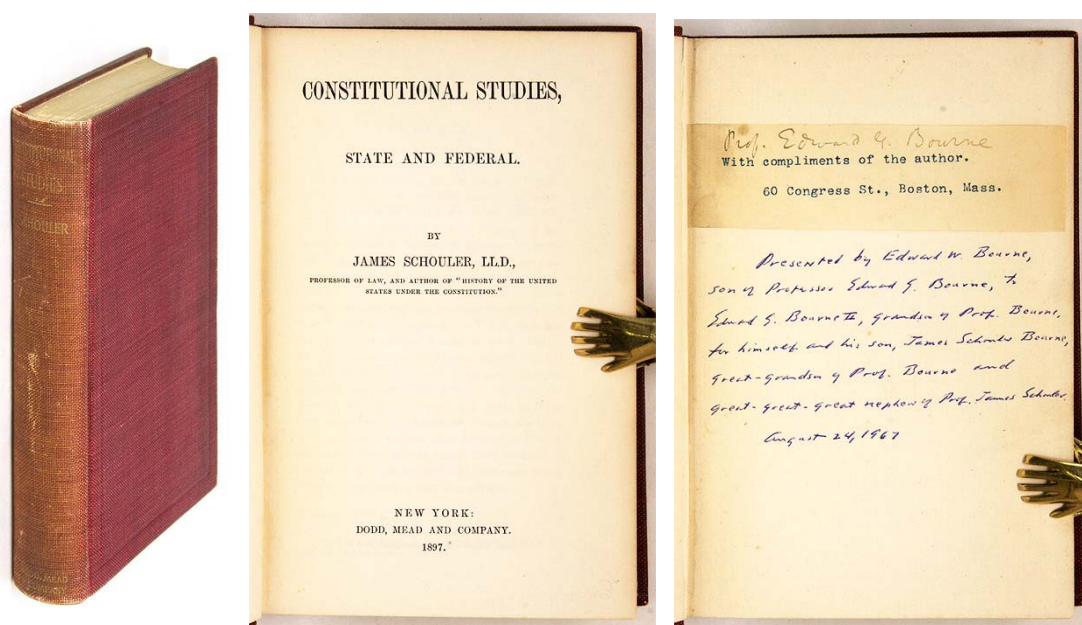 STUDIES
CONSTITUTIONAL STUDIES,
STATE AND FEDERAL.
BY
JAMES SCHOULER, LL.D.,
PROFESSOR OF LAW, AND AUTHOR OF "HISTORY OF THE UNITED
STATES UNDER THE CONSTITUTION."
NEW YORK:
DODD, MEAD AND COMPANY.
1897.
Prof. Edward G. Bourne
With compliments of the author.
60 Congress St., Boston, Mass.
Presented by Edward W. Bourne,
son of Professor Edward G. Bourne, to
Edward G. Bourne II, grandson of Prof. Bourne,
for himself and his son, James Schouler Bourne,
great-grandson of Prof. Bourne and
great-great-great nephew of Prof. James Schouler.
August 24, 1967